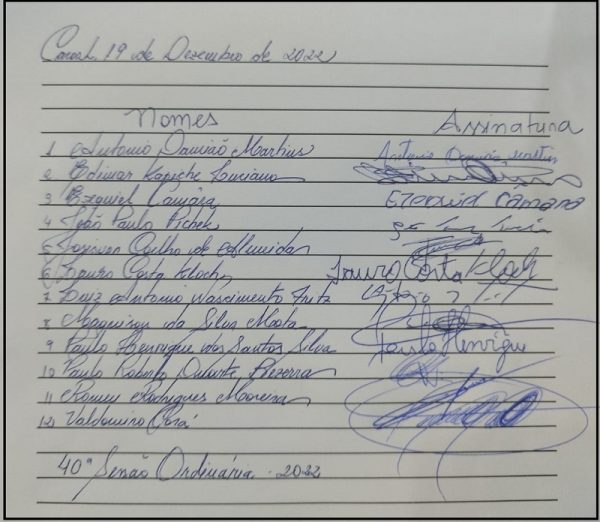 19 de Dezembro de 2022
Nomes Assinatura
1 Antonio Damião Martins Antonio Damião Martins
2 Edimar Kapiche Luciano
3 Ezequiel Camâra Ezequiel Câmara
4 João Paulo Pichek
5 Coelho de Almeida
6 Lauro Costa Kloch Lauro Costa Kloch
7 Luiz Antonio Nascimento Fritz
8 da Silva Mota
9 Paulo Henrique dos Santos Silva Paulo Henrique
10 Paulo Roberto Duarte Bezerra
11 Romeu Rodrigues Moreira
12 Valdomiro Corá
40ª Sessão Ordinária 2022